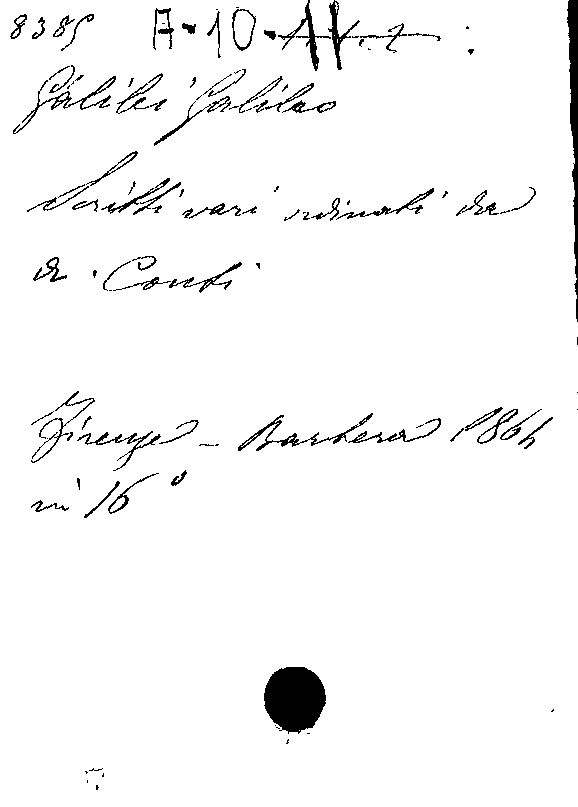 8385 A-10-11
Galilei Galileo
Scritti vari ordinati da
A. Conti
Firenze - Barbera 1864
in 16°